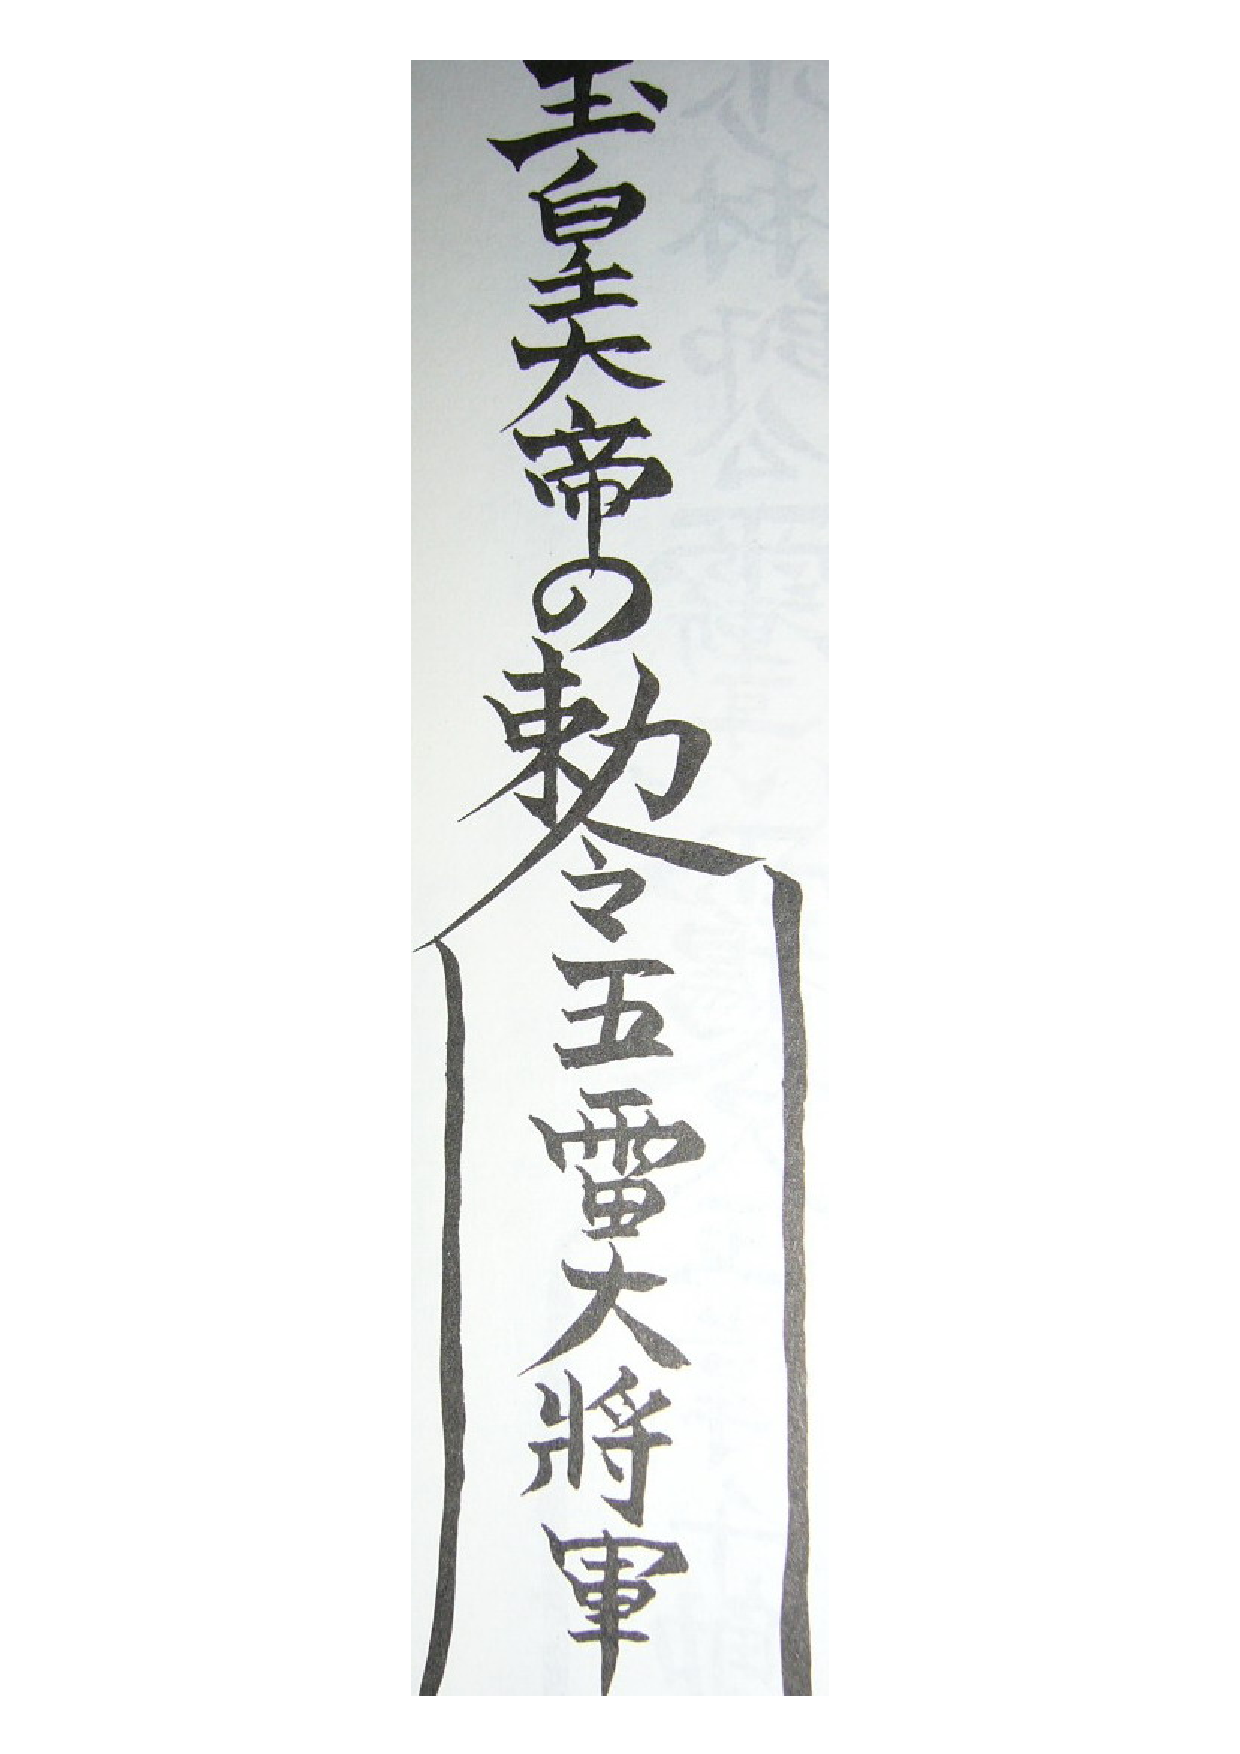 玉皇大帝の勅令五雷大將軍